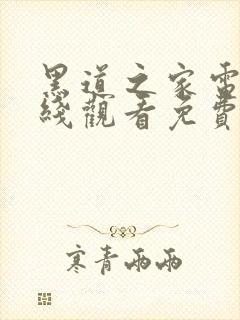 黑道之家電
綫觀看免費
寒青雨雨